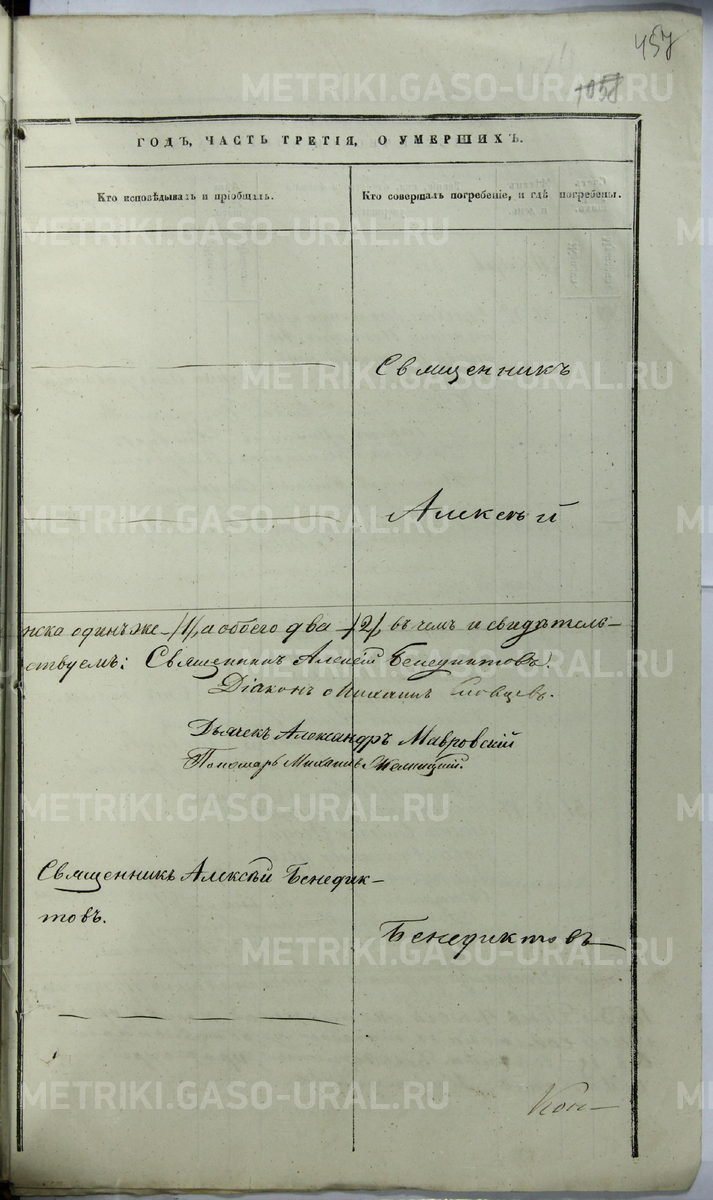 457
1058
ГОДЪ, ЧАСТЬ ТРЕТІЯ, О УМЕРШИХЪ.
Кто исповѣдывалъ и пріобщалъ.
Кто совершалъ погребеніе, и гдѣ погребены.
Священникъ
Алексѣй
пска одинъ же /1/, а обоего два /2/, въ чемъ и свидѣтель-
ствуемъ: Священникъ Алексій Бенедиктовъ.
Діаконъ Михаилъ
Дьячекъ Александръ Мавровскій
Пономарь Михаилъ
Священникъ Алексѣй Бенедик-
товъ.
Бенедиктовъ
Кон-
METRIKI.GASO-URAL.RU